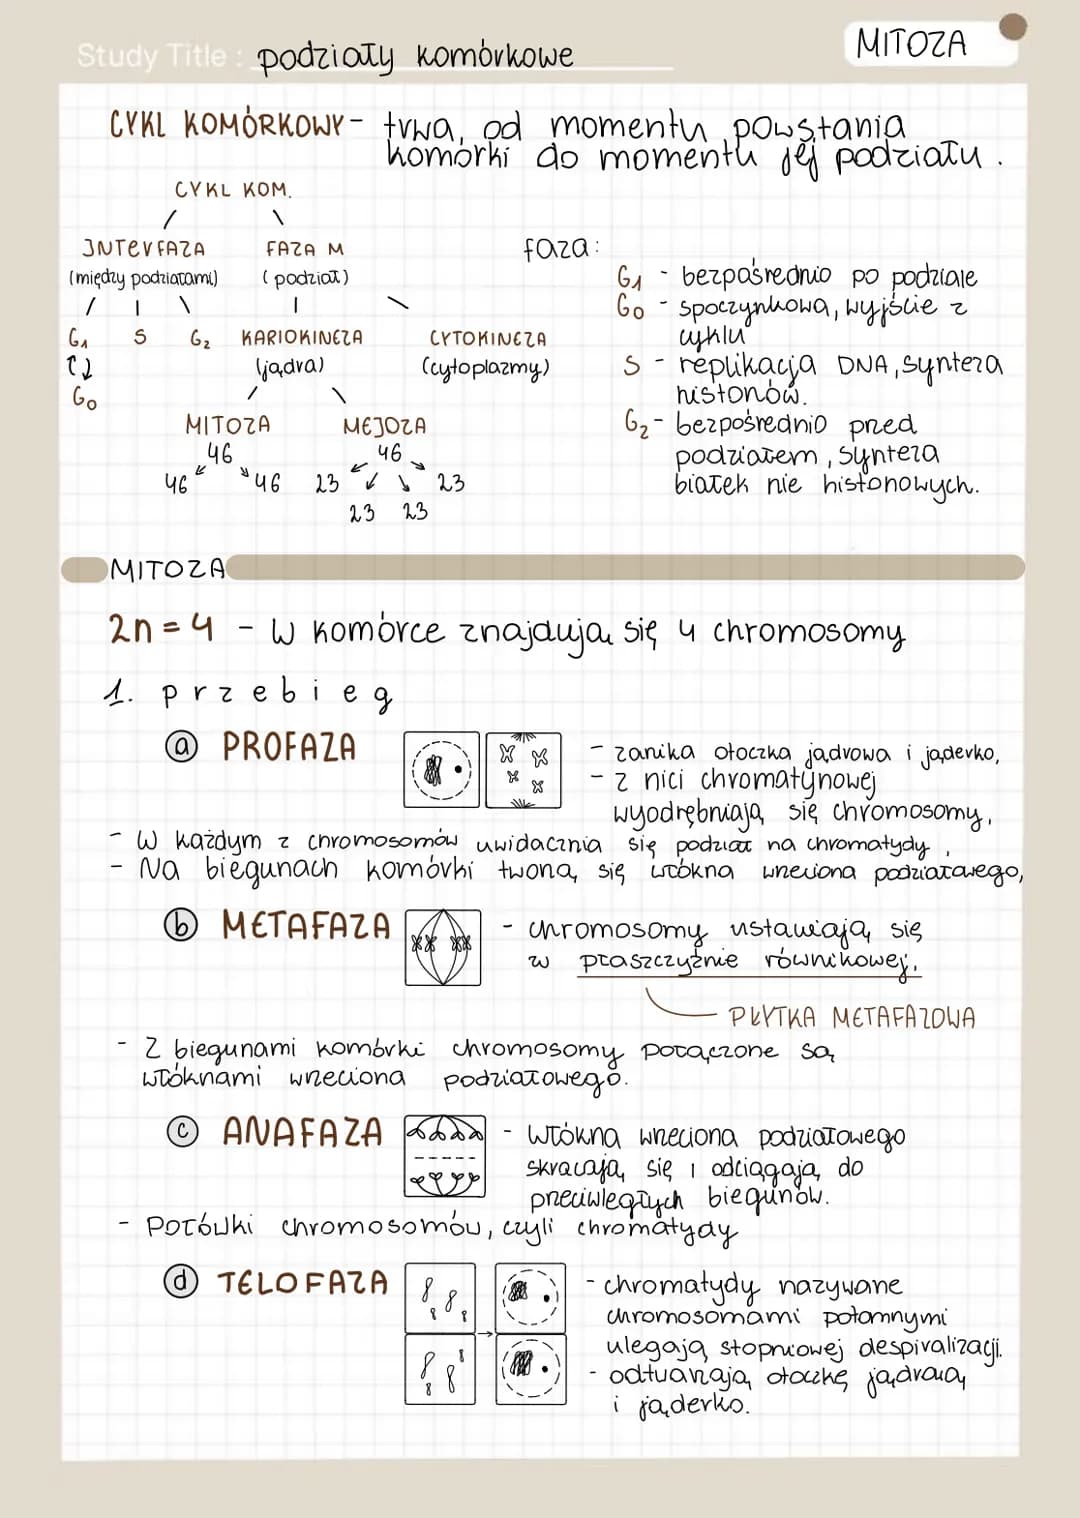 Study Title : podziały komórkowe
MITOZA
CYKL KOMÓRKOWY - trwa, od momentu powstania
komórki do momentu jej podziału.
CYKL KOM.
INTERFAZA
(między podziałami)
FAZA M
(podział)
G1 S G2
G0
KARIOKINEZA
(jądra)
CYTOKINEZA
(cytoplazmy)
MITOZA
46
46 46
MEJOZA
46
23 23
23 23
faza:
G1 - bezpośrednio po podziale
G0 - spoczynkowa, wyjście z
cyklu
S - replikacja DNA, synteza
histonów.
G2 - bezpośrednio przed
podziałem, synteza
białek nie histonowych.
MITOZA
2n = 4 - w komórce znajdują się 4 chromosomy
1. przebieg
a PROFAZA
- zanika otoczka jądrowa i jąderko,
- z nici chromatynowej
wyodrębniają się chromosomy,
- W każdym z chromosomów uwidacznia się podział na chromatydy,
- Na biegunach komórki tworzą się włókna wrzeciona podziałowego,
b METAFAZA
- chromosomy ustawiają się
w płaszczyźnie równikowej.
PŁYTKA METAFAZOWA
- Z biegunami komórki chromosomy połączone są
włóknami wrzeciona podziałowego.
c ANAFAZA
- Włókna wrzeciona podziałowego
skracają się i odciągają do
przeciwległych biegunów.
- Połówki chromosomów, czyli chromatydy
d TELOFAZA
- chromatydy nazywane
chromosomami potomnymi
ulegają stopniowej despiralizacji.
- odtwarzają otoczkę jądrową
i jąderko.